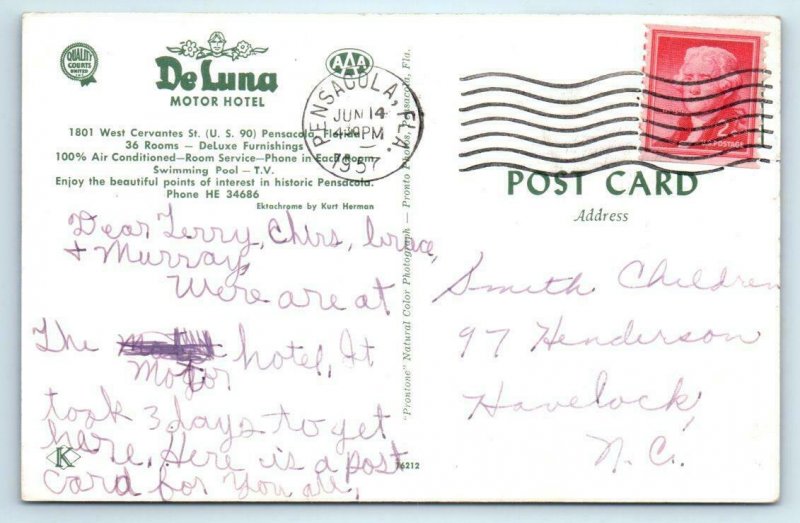 QUALITY
COURTS
UNITED
DeLuna
MOTOR HOTEL
AAA
1801 West Cervantes St. (U. S. 90) Pensacola, Florida
36 Rooms — DeLuxe Furnishings
100% Air Conditioned—Room Service—Phone in Each Room
Swimming Pool — T.V.
Enjoy the beautiful points of interest in historic Pensacola.
Phone HE 34686
Ektachrome by Kurt Herman
PENSACOLA, FLA.
JUN 14
4 PM
1957
2¢
U.S. POSTAGE
POST CARD
Address
Dear Terry, Chirs, Bruce,
+ Murray,
Were are at
The hotel, It
Motor
took 3 days to get
here, Here is a post
Card for You all,
K
"Prontone" Natural Color Photograph — Pronto Photos, Pensacola, Fla.
16212
Smith Children
97 Henderson
Havelock,
N.C.